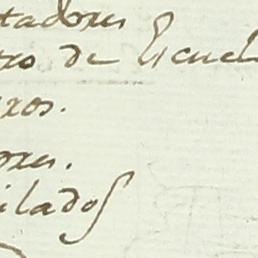 tadores
tro de Escuel
ros.
ores.
ilados